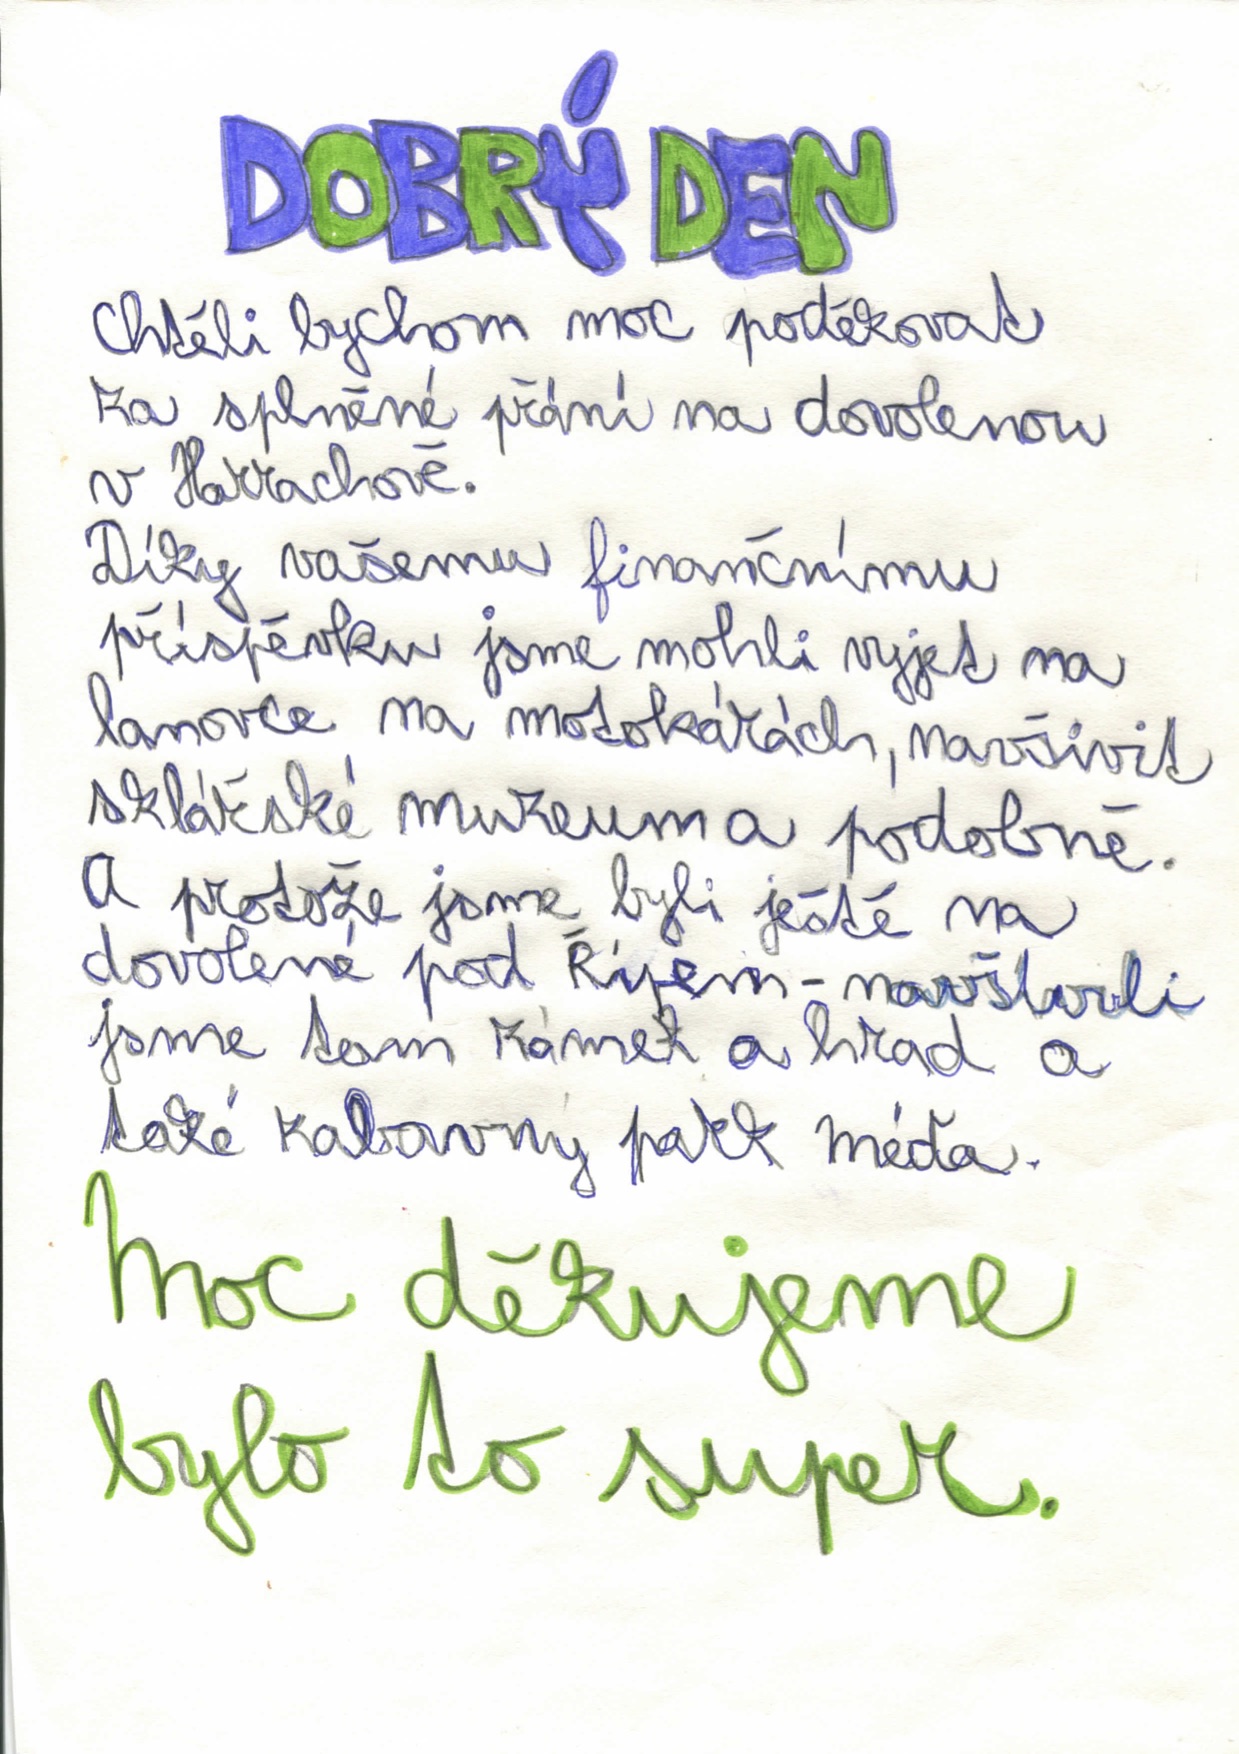 DOBRÝ DEN
Chtěli bychom moc poděkovat
za splněné přání na dovolenou
v Harrachově.
Díky vašemu finančnímu
příspěvku jsme mohli vyjet na
lanovce na motokárách, navšivit
sklářské muzeum a podobně.
A protože jsme byli ještě na
dovolené pod Řípem - navštvili
jsme tam zámek a hrad a
také zabavný park méďa.
Moc děkujeme
bylo to super.